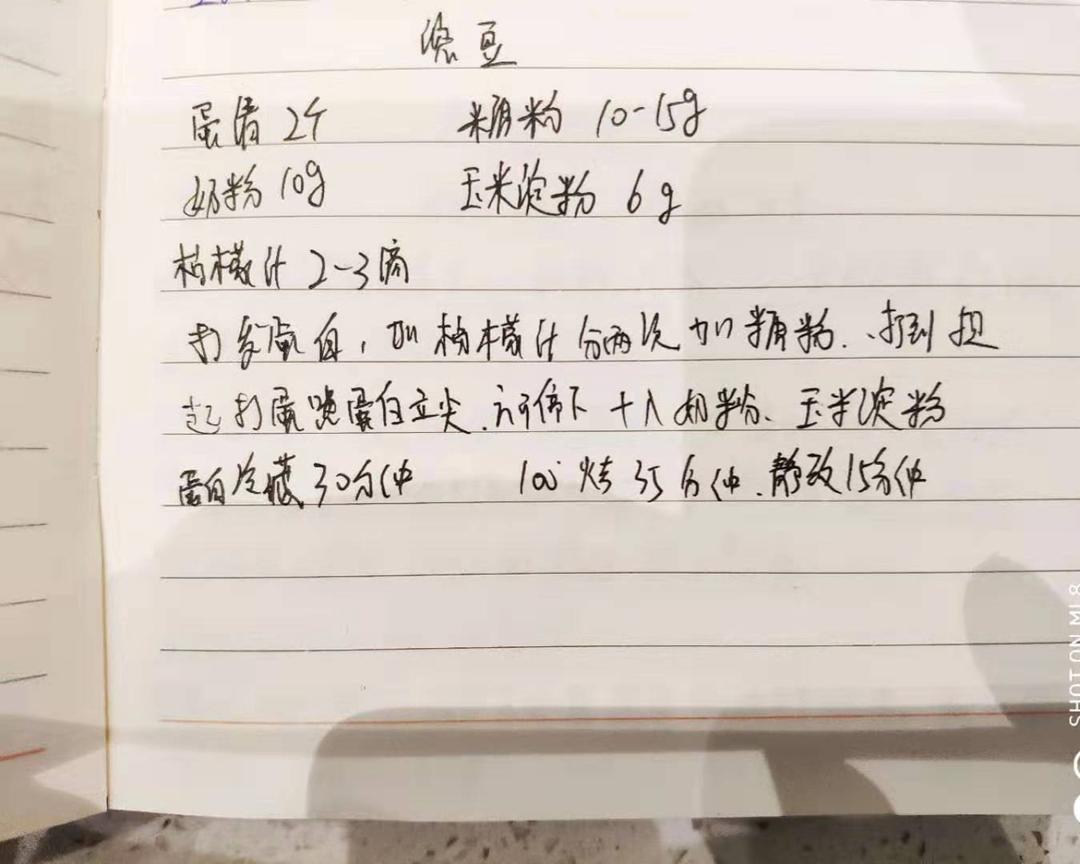 溶豆
蛋清 2个 糖粉 10-15g
奶粉 10g 玉米淀粉 6g
柠檬汁 2-3滴
打发蛋白,加柠檬汁分两次加糖粉、打到提
起打蛋器蛋白立尖、方可停下 加入奶粉、玉米淀粉
蛋白冷藏30分钟 100° 烤 35分钟、静放15分钟
SHOT ON MI 8